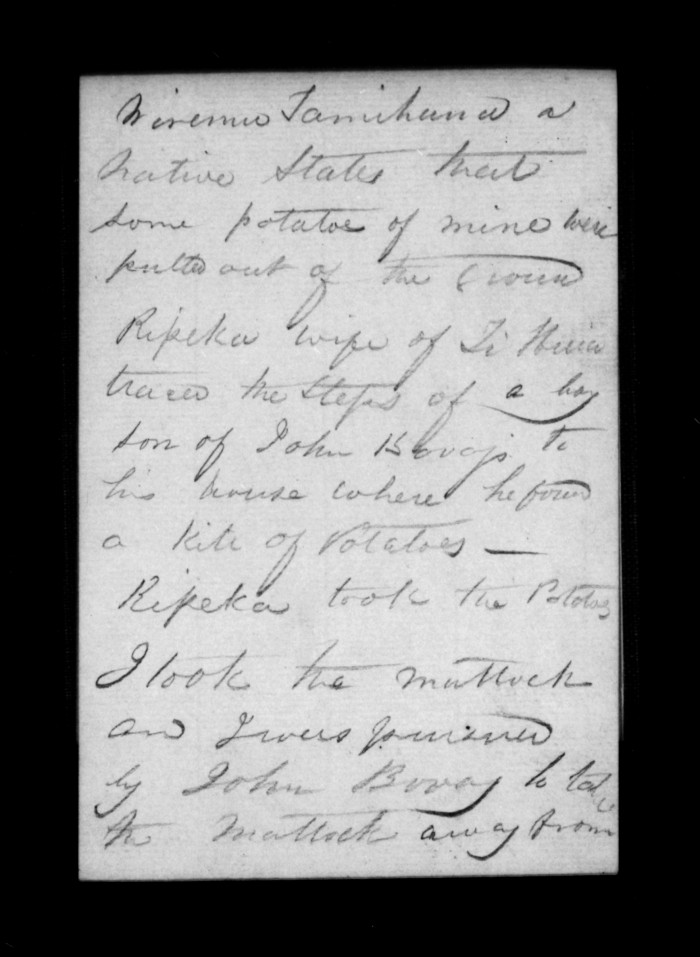 Wiremu Tamihana a
native States that
some potatoe of mine were
pulled out of the Groun
Ripeka wife of Te
traced the steps of a boy
son of John Bovay to
his house where he foun
a kite of Potatoes —
Ripeka took the Potatoes
I took the mattock
and I was pursued
by John Bovay to take
the Mattock away from